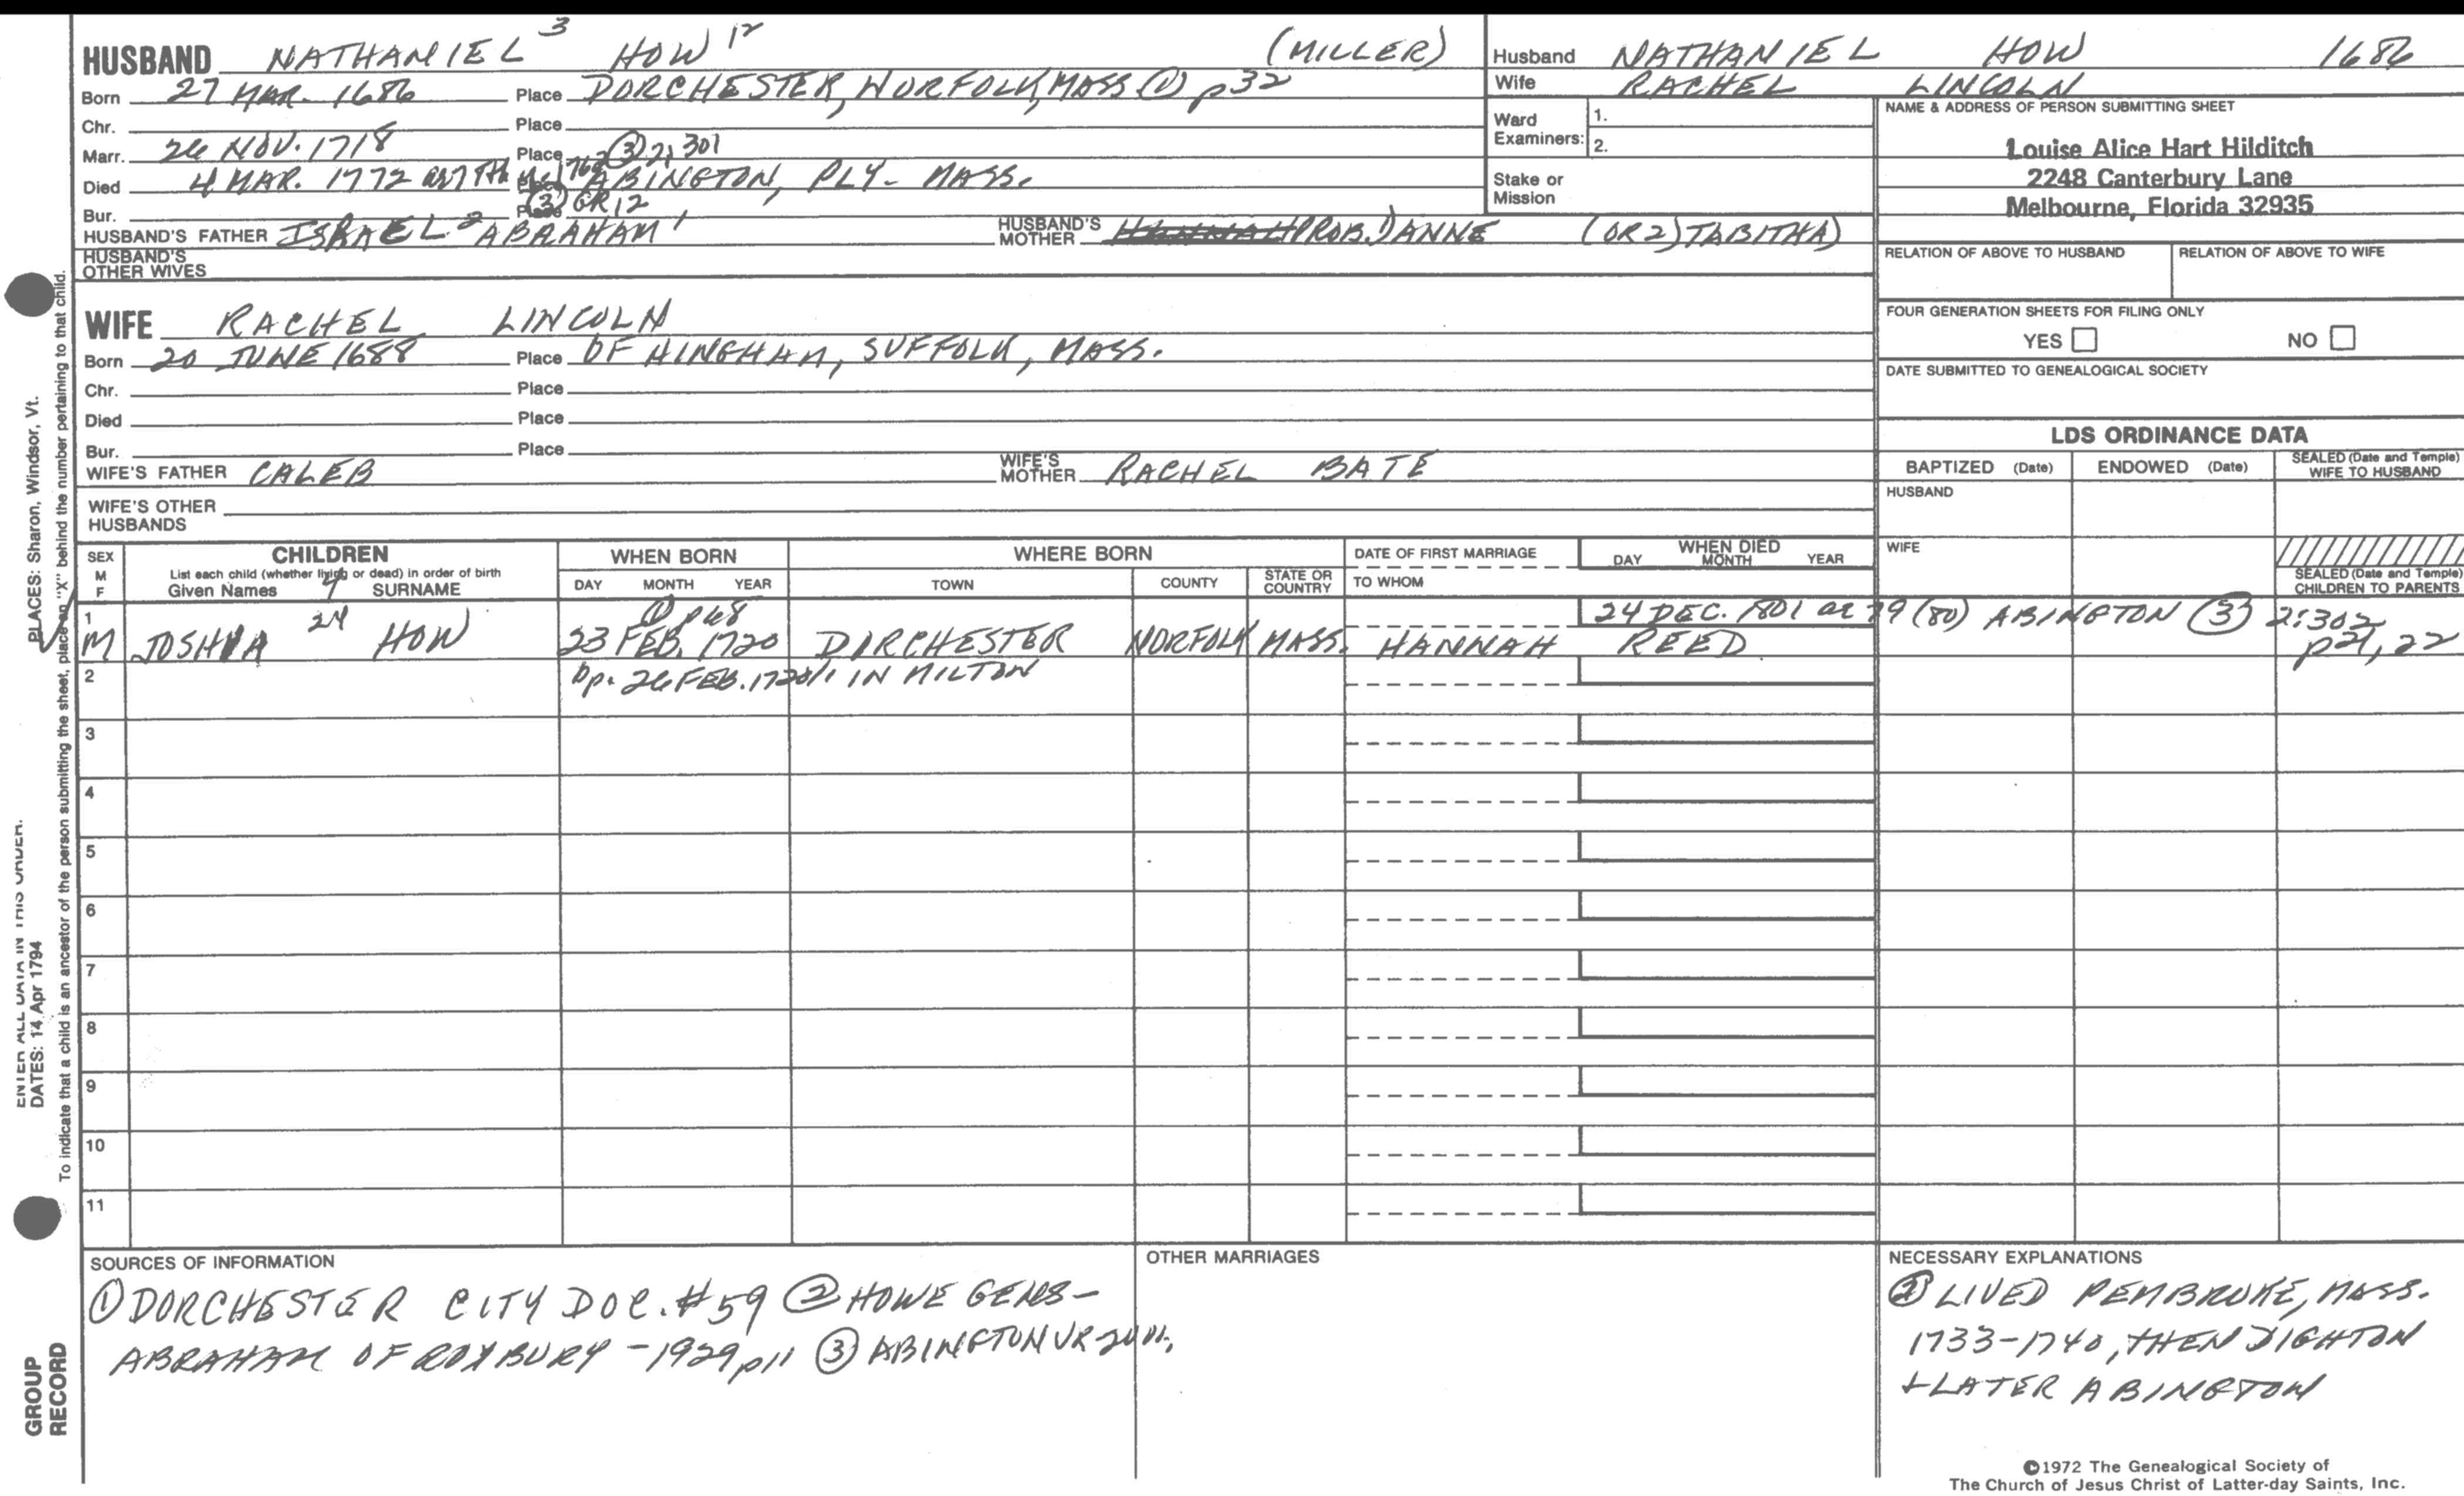 HUSBAND NATHANIEL 3 HOW 12 (MILLER)
Born 27 MAR. 1686 Place DORCHESTER, NORFOLK, MASS ① p32
Chr. Place
Marr. 26 NOV. 1718 Place ③ 2; 301
Died 4 MAR. 1772 Place ABINGTON, PLY. MASS.
Bur. Place (3) GR12
HUSBAND'S FATHER ISRAEL 2 ABRAHAM 1 HUSBAND'S MOTHER PROB. 1) ANNE (OR 2) TABITHA)
HUSBAND'S OTHER WIVES
WIFE RACHEL LINCOLN
Born 20 JUNE 1688 Place OF HINGHAM, SUFFOLK, MASS.
Chr. Place
Died Place
Bur. Place
WIFE'S FATHER CALEB WIFE'S MOTHER RACHEL BATE
WIFE'S OTHER HUSBANDS
Husband NATHANIEL HOW 1686
Wife RACHEL LINCOLN
Ward Examiners: 1.
2.
Stake or Mission
NAME & ADDRESS OF PERSON SUBMITTING SHEET
Louise Alice Hart Hilditch
2248 Canterbury Lane
Melbourne, Florida 32935
RELATION OF ABOVE TO HUSBAND RELATION OF ABOVE TO WIFE
FOUR GENERATION SHEETS FOR FILING ONLY
YES NO
DATE SUBMITTED TO GENEALOGICAL SOCIETY
LDS ORDINANCE DATA
BAPTIZED (Date) ENDOWED (Date) SEALED (Date and Temple) WIFE TO HUSBAND
HUSBAND
WIFE
SEALED (Date and Temple) CHILDREN TO PARENTS
SEX M F
CHILDREN
List each child (whether living or dead) in order of birth
Given Names SURNAME
WHEN BORN
DAY MONTH YEAR
WHERE BORN
TOWN COUNTY STATE OR COUNTRY
DATE OF FIRST MARRIAGE
TO WHOM
WHEN DIED
DAY MONTH YEAR
1 ① p68 24 DEC. 1801 ae 79 (80) ABINGTON ③ 2:302
M JOSHUA 4 24 HOW 23 FEB. 1720 DORCHESTER NORFOLK MASS. HANNAH REED p21, 22
2 bp. 26 FEB. 1720/1 IN MILTON
3
4
5
6
7
8
9
10
11
SOURCES OF INFORMATION
① DORCHESTER CITY DOC. #59 ② HOWE GENS-
ABRAHAM OF ROXBURY - 1929 p11 ③ ABINGTON VR
OTHER MARRIAGES
NECESSARY EXPLANATIONS
② LIVED PEMBROKE, MASS.
1733-1740, THEN DIGHTON
+ LATER ABINGTON
©1972 The Genealogical Society of
The Church of Jesus Christ of Latter-day Saints, Inc.
PLACES: Sharon, Windsor, Vt.
ENTER ALL DATA IN THIS ORDER.
DATES: 14 Apr 1794
To indicate that a child is an ancestor of the person submitting the sheet, place an "X" behind the number pertaining to that child.
GROUP RECORD